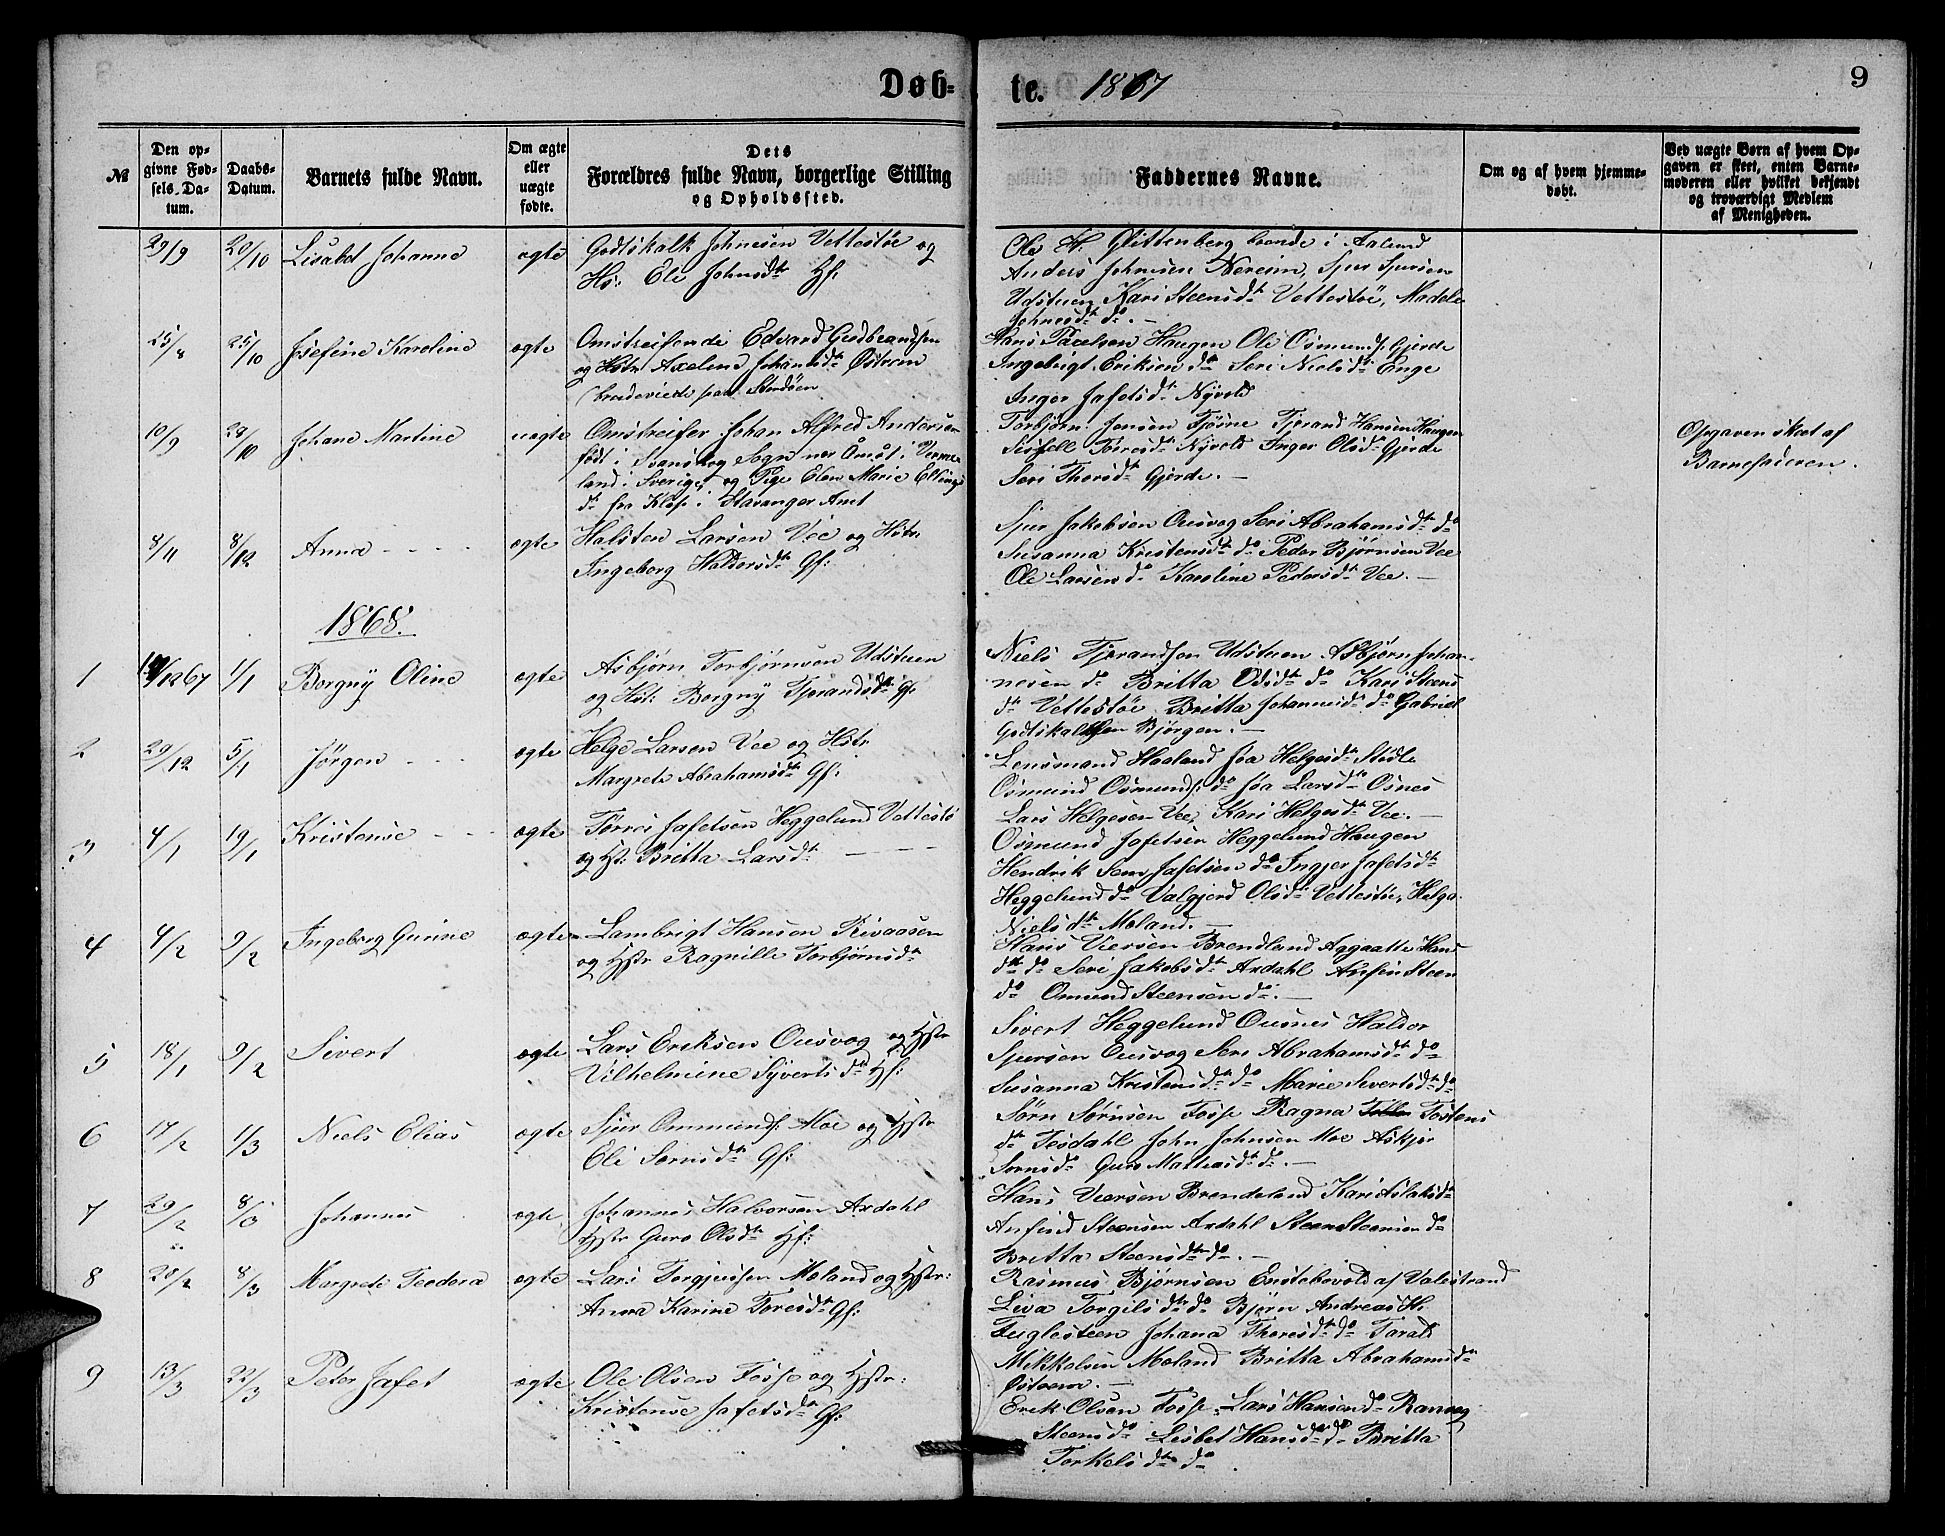 Døb-
te. 1867
9
№
Den op-
givne Fød-
sels-Da-
tum.
Daabs-
Datum.
Barnets fulde Navn.
Om ægte
eller
uægte
fødte.
Dets
Forældres fulde Navn, borgerlige Stilling
og Opholdssted.
Faddernes Navne.
Om og af hvem hjemme-
døbt.
Ved uægte Børn af hvem Op-
gaven er skeet, enten Barne-
moderen eller hvilket bekjendt
og troværdigt Medlem
af Menigheden.
29/9 20/10 Lisabet Johanne ægte Godtskalk Johnesen Vettestøe og
Hs: Eli Johnsdtr Hf:
Ole H. Glittenberg boende i Aalesund
Anders Johnesen Nereim, Sjur Sjursen
Udstuen Kari Steensdtr Vettestöe, Madele
Johnesdtr do. —
25/8 25/10 Josefine Karoline ægte Omstreifende Edvard Gudbrandsen
og Hstr Axeline Johansdtr Østrem
Hans Paulsen Haugen Ole Osmunds. Gjerde
Ingebrigt Eriksen do Seri Nielsdtr Enge
Inger Jafetsdtr Nyvold
10/9 23/10 Johane Martine uægte Omstreifer Johan Alfred Andersen
født i Svanskog Sogn nær Åmöt i Verme-
land i Sverige, og Pige Elen Marie Ellings
dtr fra Klep i Stavanger Amt
Torbjörn Jonsen Tjösne Tjerand Hansen Haugen
Sisfell Torresdtr Nyvold Inger Olsdtr Gjerde
Seri Thorsdtr Gjerde. —
Opgaven skeet af
Barnefaderen.
8/11 8/12 Anna - - - - ægte Halsten Larsen Vee og Hstr
Ingeborg Haldorsdtr Gf:
Sjur Jakobsen Ousvog Seri Abrahamsdtr do
Susanna Kristensdtr do Peder Bjørnsen Vee
Ole Larsen do Karoline Pedersdtr Vee. —
1868.
1 14/12 67 1/1 Borgny Oline ægte Asbjørn Torbjørnsen Udstuen
og Hst: Borgny Tjerandsdtr Gf
Niels Tjerandsen Udstuen Asbjørn Johan-
nesen do Britta Odsdtr do Kari Steens
dtr Vettestöe Britta Johannesdtr do Gabriel
Godtskalksen Bjørgen. —
2 29/12 5/1 Jörgen - - - ægte Helge Larsen Vee og Hstr
Margrete Abrahamsdtr Gf:
Lensmand Haaland fra Helgesdtr Stødle
Osmund Osmunds. do fra Larsdtr Osnes
Lars Helgesen Vee, Kari Helgesdtr Vee. —
3 4/1 19/1 Kristense - - - ægte Törres Jafetsen Heggelund Vettestö
og Hst: Britta Larsdtr — — — —
Osmund Jafetsen Heggelund Haugen
Hendrik Sem Jafetsen do Ingjer Jafetsdtr
Heggelund do Valgjerd Olsdtr Vettestöe, Helga
Nielsdtr Moland. —
4 4/2 9/2 Ingeborg Gurine ægte Lambrigt Hansen Rivaasen
og Hstr Ragnille Torbjørnsdtr
Hans Viersen Brendeland Aggaatte Hans
dtr do Seri Jakobsdtr Axdahl Anfin Steen
do Omund Steensen do. —
5 18/1 9/2 Sivert ægte Lars Eriksen Ousvog og Hstr
Vilhelmine Syvertsdtr Hf:
Sivert Heggelund Ousnes Haldor
Sjursen Ousvog Seri Abrahamsdtr do
Susanna Kristensdtr do Marie Sivertsdtr do
6 17/2 1/3 Niels Elias ægte Sjur Ommunds. Moe og Hstr
Eli Sørnsdtr Gf:
Sørn Sørnsen Fosse Ragna Tostens
dtr Tesdahl John Johnsen Moe Askjer
Sørnsdtr Guro Mattiasdtr do. —
7 29/2 8/3 Johannes ægte Johannes Halvorsen Axdahl
Hstr Guro Olsdtr Hf:
Hans Viersen Brendeland Kari Aslaksdtr
Anfind Steensen Axdahl Steen Steensen do
Britta Steensdtr do. —
8 20/2 8/3 Margrete Teodora ægte Lars Torgjussen Moland og Hstr:
Anna Karine Toresdtr Gf:
Rasmus Bjørnsen Enstebovold af Valestrand
Liva Torgilsdtr do Bjørn Andreas H.
Fuglesteen Johana Thoresdtr do Tarald
Mikkelsen Moland Britta Abrahamsdtr
Østrem. —
9 13/3 22/3 Peter Jafet ægte Ole Olsen Fosse og Hstr:
Kristense Jafetsdtr Gf:
Erik Olsen Fosse Lars Hansen do Ranveg
Steensdtr Lisbet Hansdtr do Britta
Torkelsdtr do